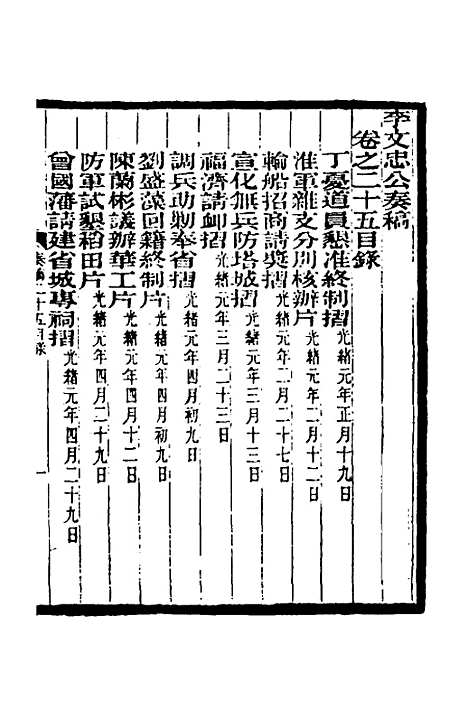 李文忠公奏稿
卷之二十五目錄
丁憂道員懇准終制摺 光緒元年正月十九日
淮軍雜支分別核辦片 光緒元年二月十二日
輪船招商請獎摺 光緒元年二月二十七日
宣化無兵防塔城摺 光緒元年三月十三日
福濟請卹摺 光緒元年三月二十三日
調兵助剿奉省摺 光緒元年四月初九日
劉盛藻回籍終制片 光緒元年四月初九日
陳蘭彬議辦華工片 光緒元年四月十二日
防軍試墾稻田片 光緒元年四月二十九日
曾國藩請建省城專祠摺 光緒元年四月二十九日
奏稿二十五目錄
一